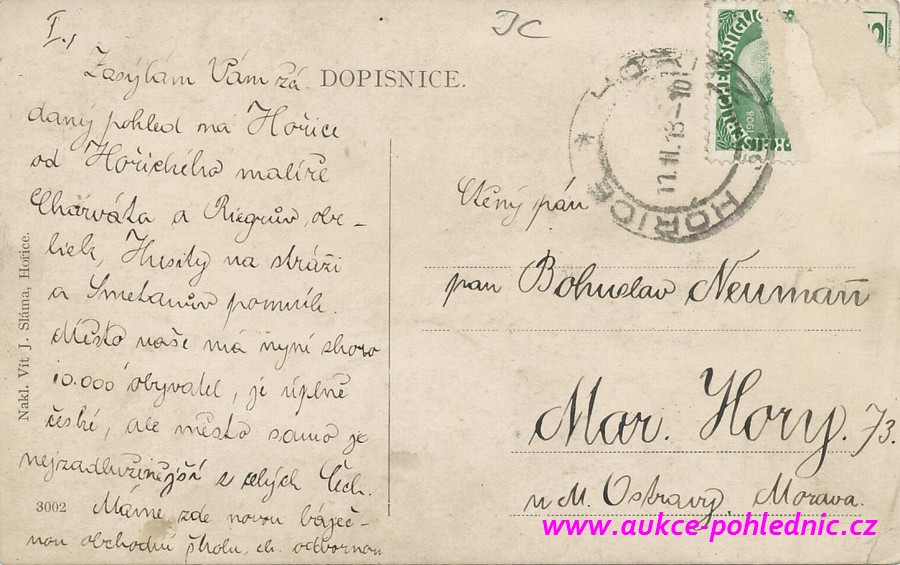 I.
JC
Zasýlám Vám žá
DOPISNICE.
daný pohled na Hořice
od Hořického malíře
Charváta a Riegrův obe-
lisk, Husity na stráži
a Smetanův pomník.
Město naše má nyní skoro
10.000 obyvatel, je úplně
české, ale město samo je
nejzadluženější z celých Čech.
Máme zde novou báječ-
nou obchodní školu, ch. odbornou
Nakl. Vít J. Sláma, Hořice.
3002
HOŘICE
11.III.13-10
1908
Ctěný pán
pan Bohuslav Neumañ
Mar. Hory. 73.
u M. Ostravy, Morava.
www.aukce-pohlednic.cz